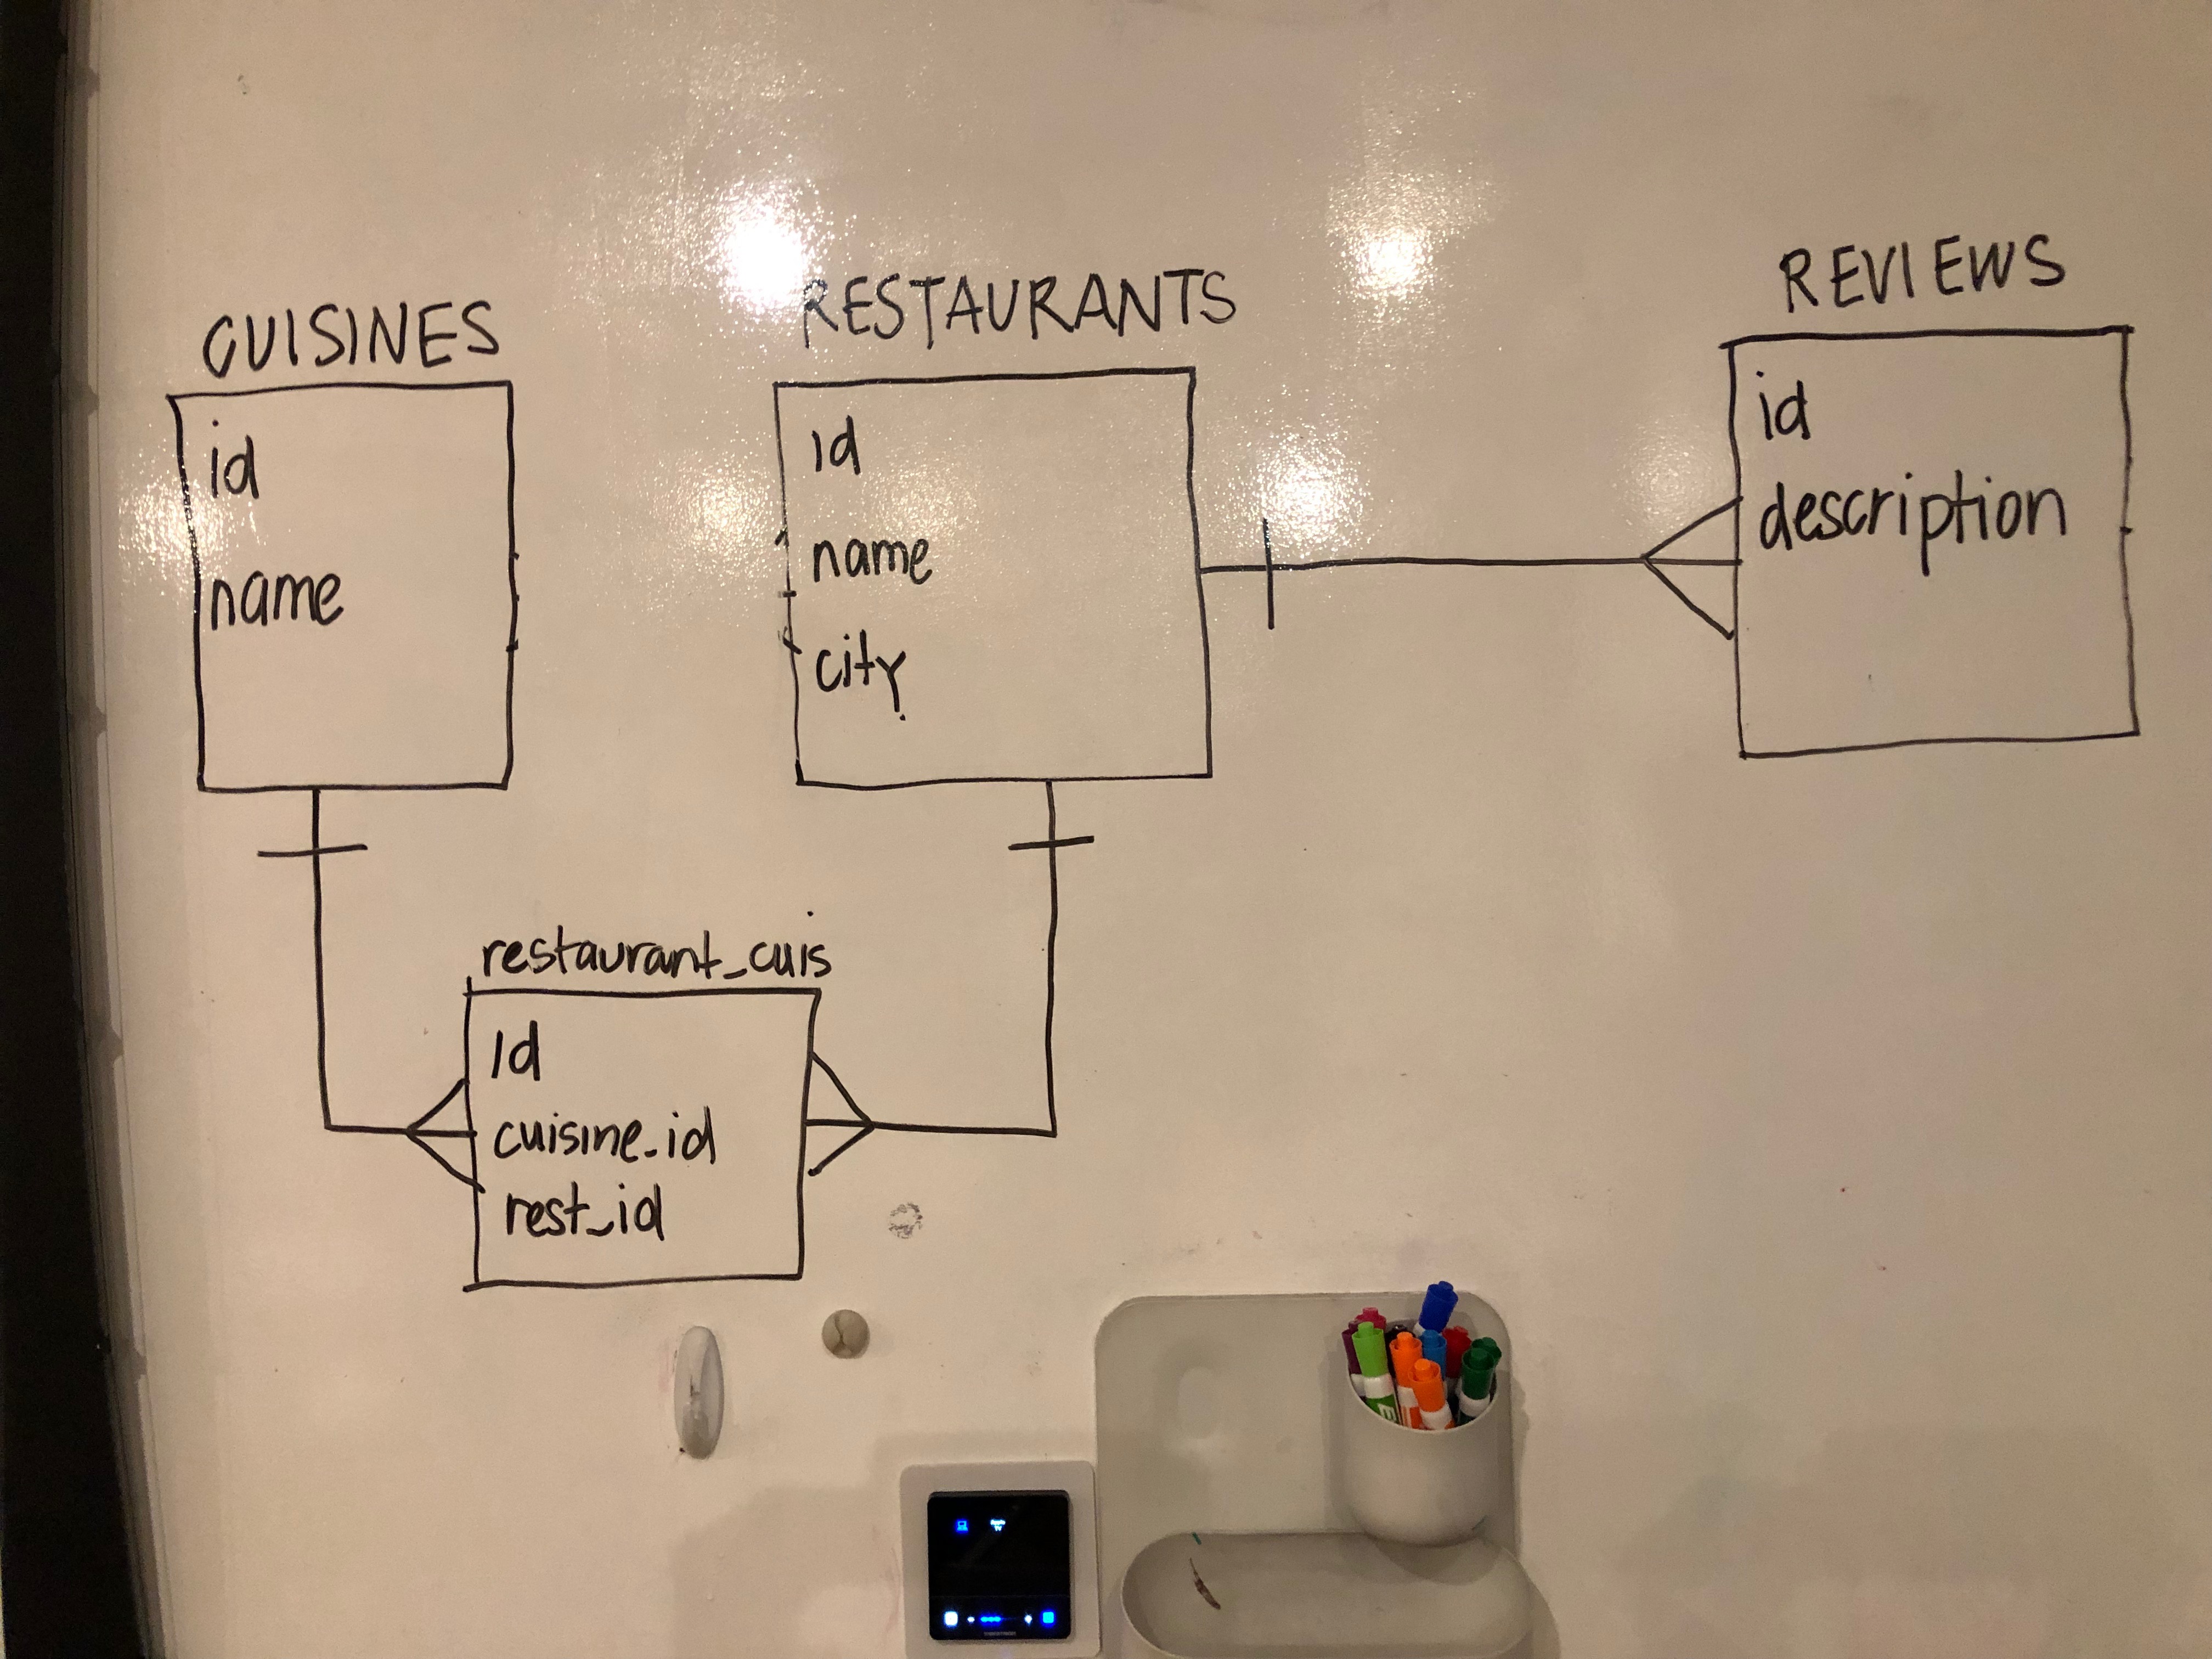 CUISINES
id
name
RESTAURANTS
id
name
city
REVIEWS
id
description
restaurant_cuis
id
cuisine_id
rest_id